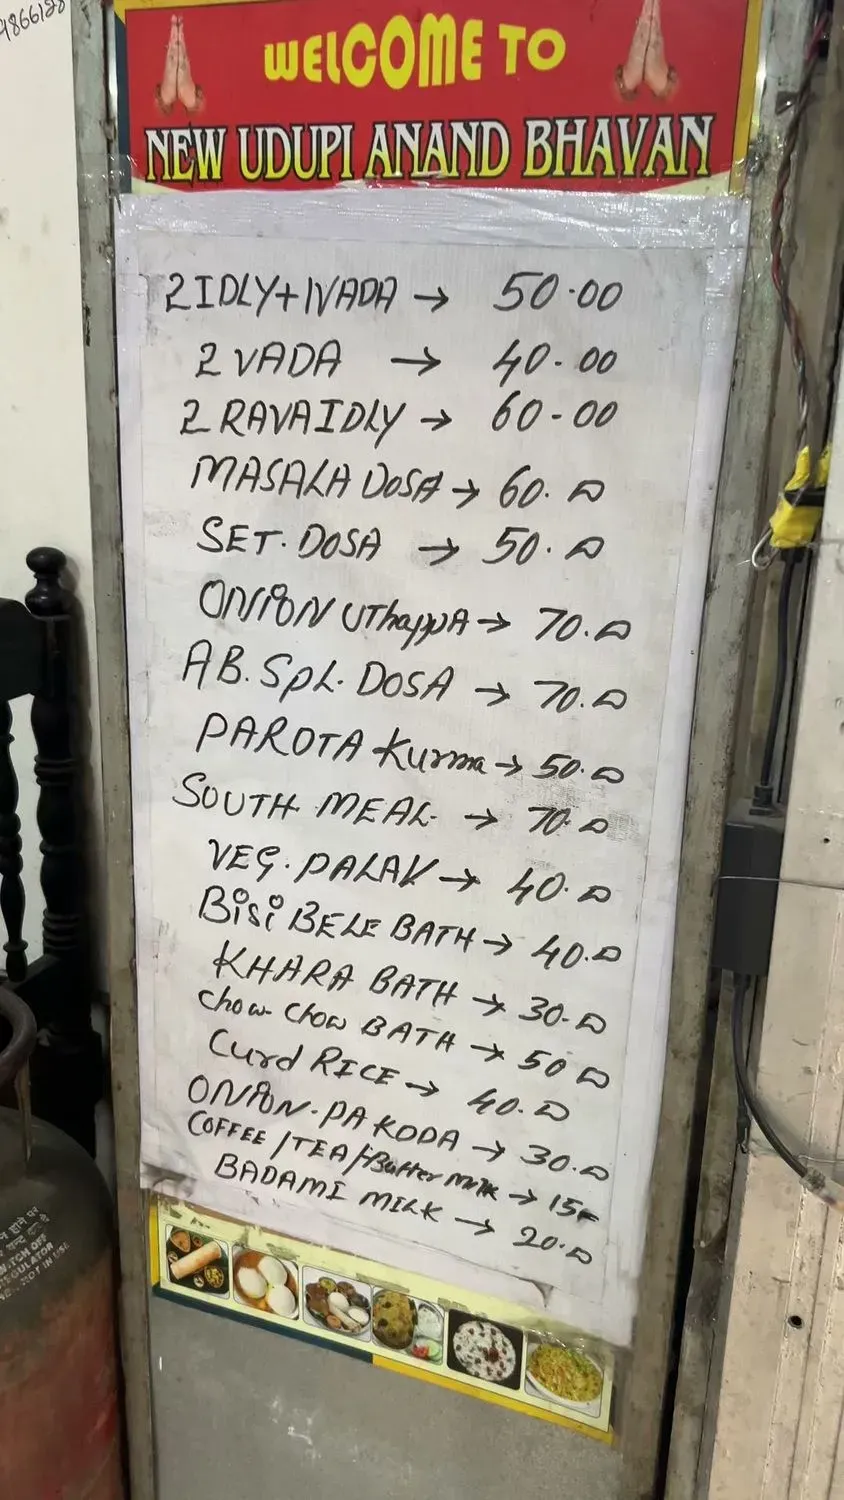 WELCOME TO
NEW UDUPI ANAND BHAVAN
2 IDLY+1VADA → 50.00
2 VADA → 40.00
2 RAVAIDLY → 60-00
MASALA DOSA → 60.00
SET. DOSA → 50.00
ONION UThappA → 70.00
AB. SpL. DOSA → 70.00
PAROTA Kurma → 50.00
SOUTH MEAL → 70.00
VEG. PALAV → 40.00
BiSi BELE BATH → 40.00
KHARA BATH → 30.00
Chow Chow BATH → 50 00
Curd RICE → 40.00
ONION.PAKODA → 30.00
COFFEE/TEA/Butter Milk → 15
BADAMI MILK → 20.00